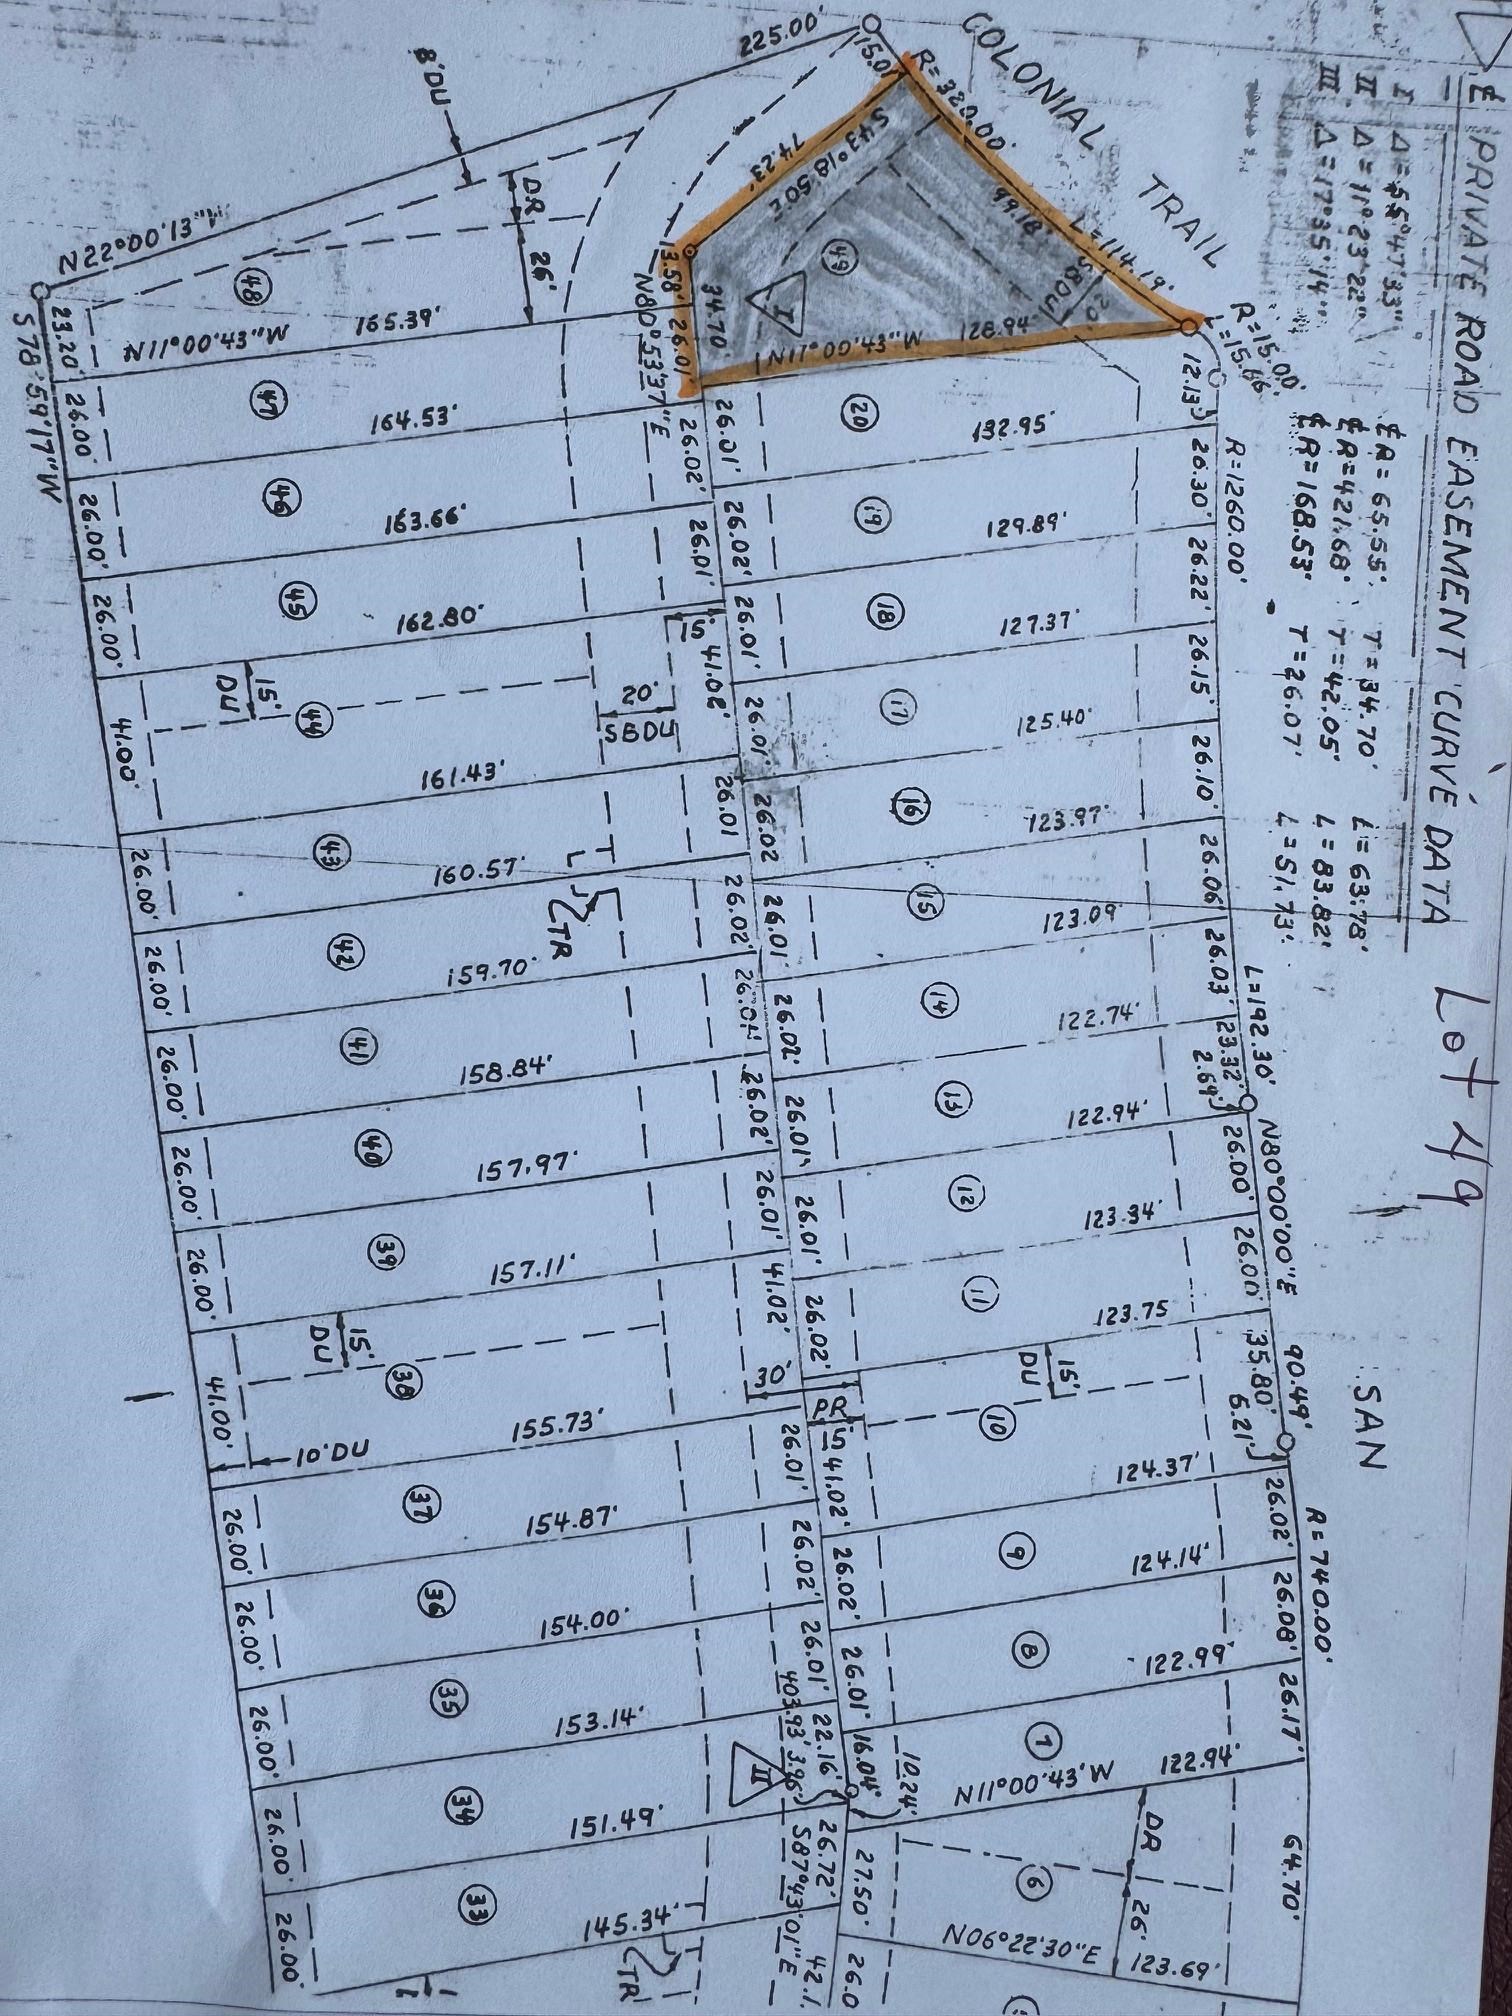 ₵ PRIVATE ROAD EASEMENT CURVE DATA
Lot 49
I Δ = 55°47'33" ₵ R = 65.55' T = 34.70' L = 63.78'
II Δ = 11°23'22" ₵ R = 421.68' T = 42.05' L = 83.82'
III Δ = 17°35'14" ₵ R = 168.53' T = 26.07' L = 51.73'
COLONIAL TRAIL
SAN
R = 320.00'
L = 114.19'
99.18'
15.01'
225.00'
R = 15.00'
L = 15.66'
R = 1260.00'
L = 192.30'
N80°00'00"E
90.49'
R = 740.00'
12.13'
26.30'
26.22'
26.15'
26.10'
26.06'
26.03'
23.32'
2.69'
26.00'
26.00'
35.80'
5.21'
26.02'
26.08'
26.17'
64.70'
S43°18'50"E
74.23'
49
I
SBDU
20'
34.70'
13.58'
26.01'
N80°53'37"E
N11°00'43"W
128.94'
20
132.95'
19
129.89'
18
127.37'
17
125.40'
16
123.97'
15
123.09'
14
122.74'
13
122.94'
12
123.34'
11
123.75
15'
DU
10
124.37'
9
124.14'
8
122.99'
7
122.94'
N11°00'43"W
DR
26'
6
N06°22'30"E
123.69'
26.01'
26.02'
26.01'
26.01'
26.02
26.01'
26.02'
26.01'
26.01'
26.02'
30'
PR
15
41.02'
26.02'
26.01'
16.04'
10.24'
27.50'
26.0
26.02'
26.01'
15'
41.02'
26.01
26.02'
26.01'
26.02'
26.01'
41.02'
26.01'
26.02'
26.01'
22.16'
403.93'
3.96'
26.72'
S87°43'01"E
42.1
II
8'DU
DR
26'
N22°00'13"
48
N11°00'43"W
165.39'
47
164.53'
46
163.66'
45
162.80'
15'
DU
44
20'
SBDU
161.43'
43
160.57'
TR
42
159.70'
41
158.84'
40
157.97'
39
157.11'
15'
DU
38
155.73'
10'DU
37
154.87'
36
154.00'
35
153.14'
34
151.49'
33
145.34'
TR
S78°59'17"W
23.20'
26.00'
26.00'
26.00'
41.00'
26.00'
26.00'
26.00'
26.00'
26.00'
41.00'
26.00'
26.00'
26.00'
26.00'
26.00'